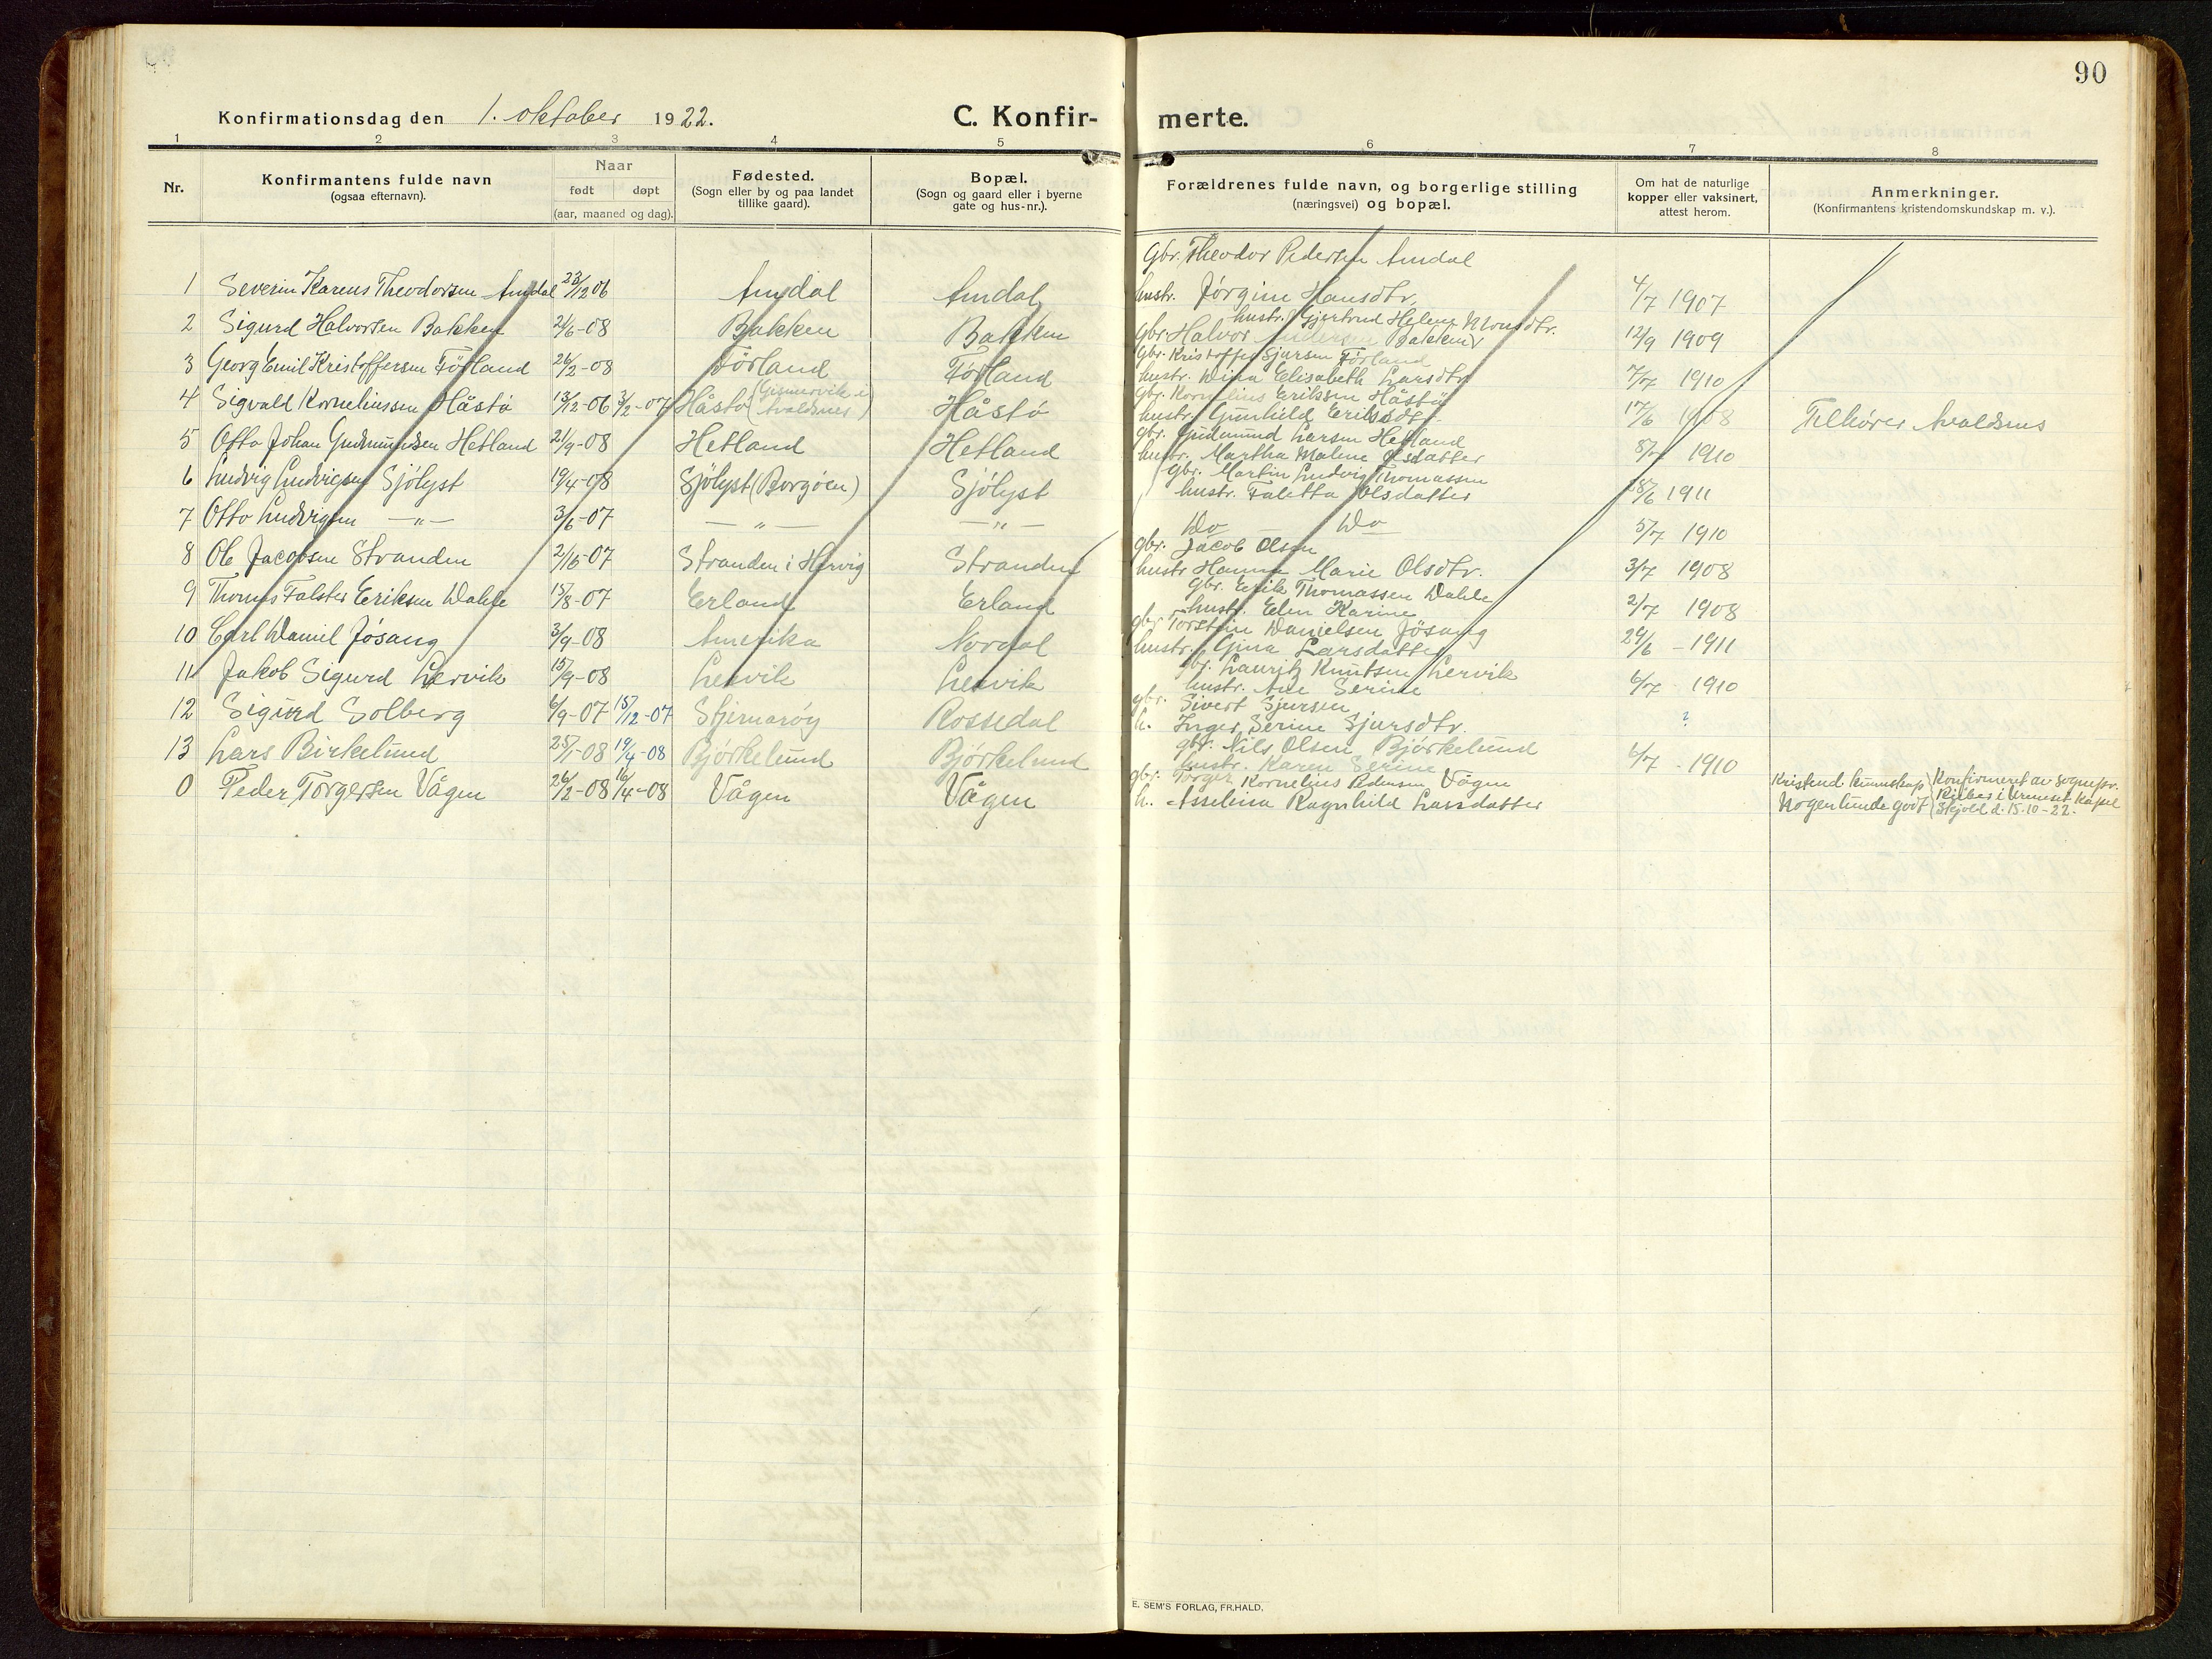 90
Konfirmationsdag den 1. oktober 1922.
C. Konfir- merte.
1 2 3 4 5 6 7 8
Nr.
Konfirmantens fulde navn
(ogsaa efternavn).
Naar
født døpt
(aar, maaned og dag).
Fødested.
(Sogn eller by og paa landet
tillike gaard).
Bopæl.
(Sogn og gaard eller i byerne
gate og hus-nr.).
Forældrenes fulde navn, og borgerlige stilling
(næringsvei) og bopæl.
Om hat de naturlige
kopper eller vaksinert,
attest herom.
Anmerkninger.
(Konfirmantens kristendomskundskap m. v.).
gbr. Theodor Pedersen Amdal
1 Severin Karens Theodorsen Amdal 23/12 06 Amdal Amdal hustr. Jørgine Hansdtr. 4/7 1907
hustr. Gjertrud Helene Monsdtr.
2 Sigurd Halvorsen Bakken 21/6-08 Bakken Bakken gbr. Halvor Andersen Bakken 12/9 1909
gbr. Kristoffer Sjursen Førland
3 Georg Emil Kristoffersen Førland 26/2-08 Førland Førland hustr. Dina Elisabeth Larsdtr. 7/7 1910
gbr. Kornelius Eriksen Håstø
4 Sigvald Korneliussen Håstø 13/12-06 3/2-07 Håstø Håstø hustr. Gunhild Eriksdtr. 17/6 1908 Tilhører Avaldsnes
gbr. Gudmund Larsen Hetland
5 Otto Johan Gudmundsen Hetland 21/9-08 Hetland Hetland hustr. Martha Malene Olsdatter 8/7 1910
gbr. Martin Ludvig Thomassen
6 Ludvig Ludvigsen Sjölyst 19/4-08 Sjölyst (Borgøen) Sjölyst hustr. Faletta Olsdatter 18/6 1911
7 Otto Ludvigsen —"— 3/6-07 —"— —"— Do Do 5/7 1910
gbr. Jacob Olsen
8 Ole Jacobsen Stranden 2/10-07 Stranden i Hervig Stranden hustr Hanna Marie Olsdtr. 3/7 1908
gbr. Erik Thomassen Dahle
9 Thomas Falster Eriksen Dahle 15/8-07 Erland Erland hustr. Elen Karine 2/7 1908
gbr. Torstein Danielsen Jösang
10 Carl Daniel Jösang 3/9-08 Amerika Nordal hustr. Gina Larsdatter 29/6 - 1911
gbr. Lauritz Knutsen Lervik
11 Jakob Sigurd Lervik 15/9-08 Lervik Lervik hustr. Ane Serine 6/7 1910
gbr. Sivert Sjursen
12 Sigurd Solberg 6/9-07 15/12-07 Stjernarøy Rossedal h. Inger Serine Sjursdtr. ?
gbr. Nils Olsen Björkelund
13 Lars Birkelund 25/1-08 19/4-08 Björkelund Björkelund hustr. Karen Serine 6/7 - 1910
gbr. Torger Kornelius Pedersen Vågen
0 Peder Torgersen Vågen 26/2-08 16/4-08 Vågen Vågen h. Asselena Ragnhild Larsdatter
Kristend. kunnskap Nogenlunde godt
Konfirmeret av sognepr.
i kapel
Skjold d. 15-10-22.
E. SEM'S FORLAG, FR.HALD.